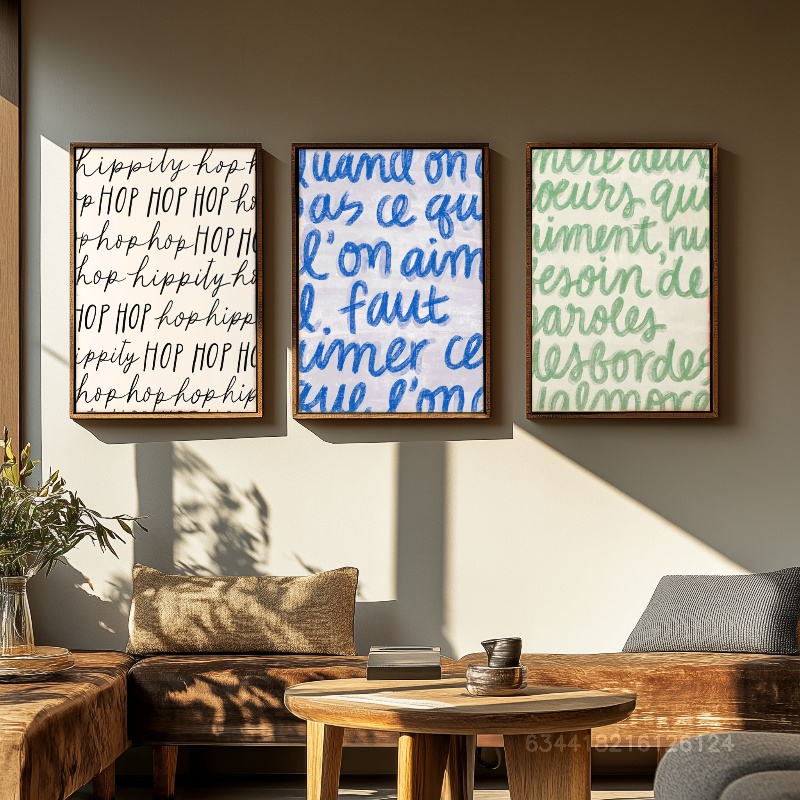 hippity hop h
p HOP HOP HOP ho
phophopHOP HO
hop hippity ho
HOP HOP hophipp
ippity HOP HOP HO
hophophophip
quand on
pas ce qu
l'on aim
l. faut
aimer ce
que l'on a
entre deux
coeurs qui
aiment, nu
besoin de
paroles
lesborde
almore
634418216126124